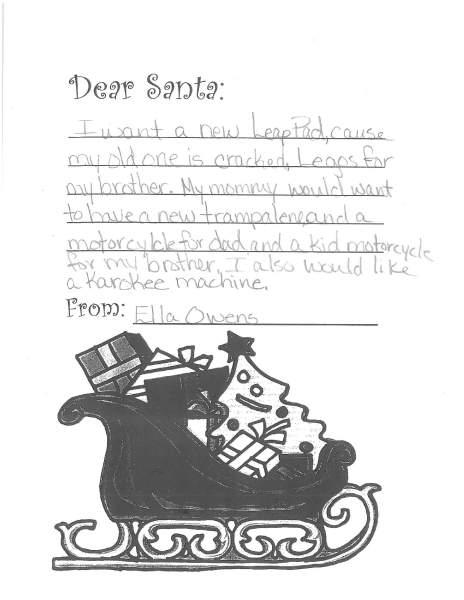 Dear Santa:
I want a new LeapPad, cause
my old one is cracked. Legos for
my brother. My mommy would want
to have a new trampalene, and a
motorcylcle for dad and a kid motorcycle
for my brother. I also would like
a Karokee machine.
From: Ella Owens